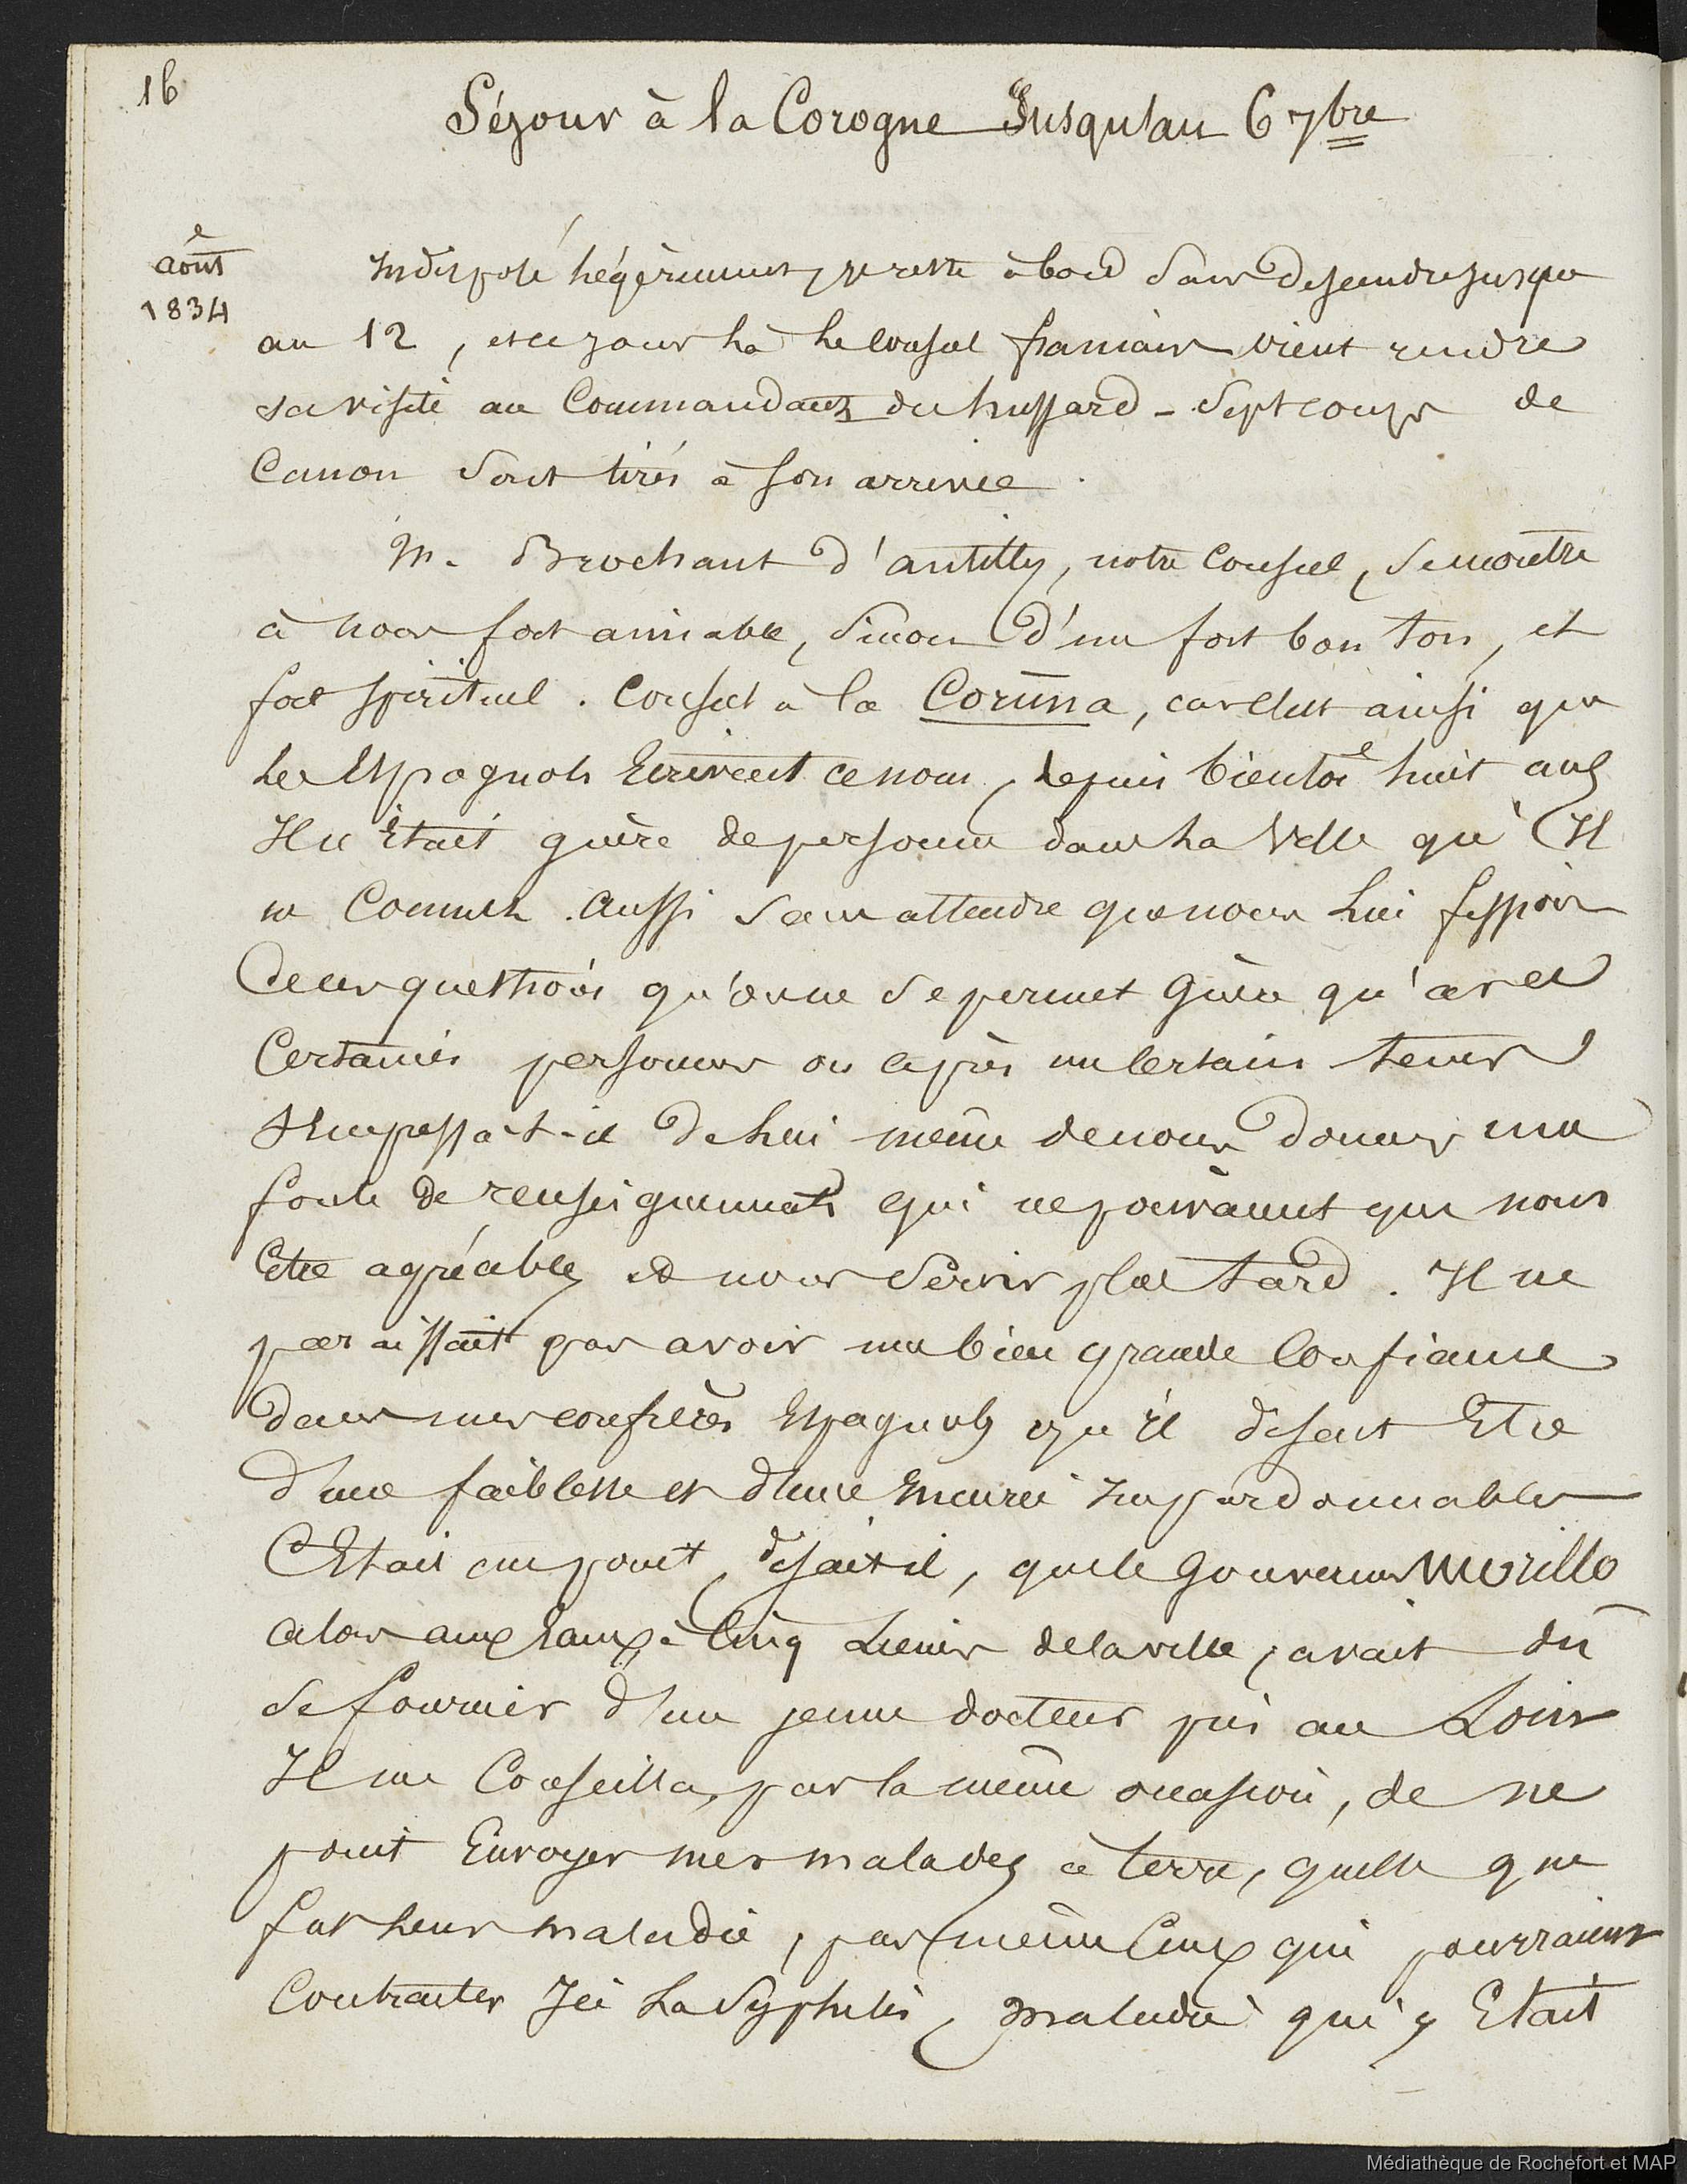 16
Séjour à la Corogne Jusqu'au 6 7bre
août
1834
Indisposé légèrement, je reste à bord sans descendre jusque
au 12, et ce jour là le Consul français vient rendre
sa visite au Commandant du hussard - Sept coups de
Canon sont tirés à son arrivée.
M. Brochant d'antilly, notre Consul, se montre
à nous fort aimable, sinon d'un fort bon ton, et
fort spirituel. Consul à la Coruna, car c'est ainsi que
les Espagnols Ecrivent ce nom, depuis bientôt huit ans
Il n'Etait guère de personne dans la Ville qu'Il
ne Connut. Aussi sans attendre que nous lui fissions
de ces questions qu'on ne se permet guère qu'avec
Certaines personnes ou après un certain tems
S'Empressa-t-il de lui même de nous donner une
foule de renseignements qui ne pouvaient que nous
Etre agréables et nous servir plus tard. Il ne
paraissait pas avoir une bien grande Confiance
dans mes confrères Espagnols qu'il disait Etre
d'une faiblesse et d'une incurie Impardonnables
C'Etait au point, disait-il, que le Gouverneur Morillo
alors aux Eaux, à Cinq Lieues de la ville, avait dû
se fournir d'un jeune docteur pris au Loin
Il me Conseilla, par la même occasion, de ne
point Envoyer mes malades à terre, quelle que
fut leur maladie, pas même Ceux qui pourraient
Contracter Ici la Syphilis, maladie qui y Etait
Médiathèque de Rochefort et MAP